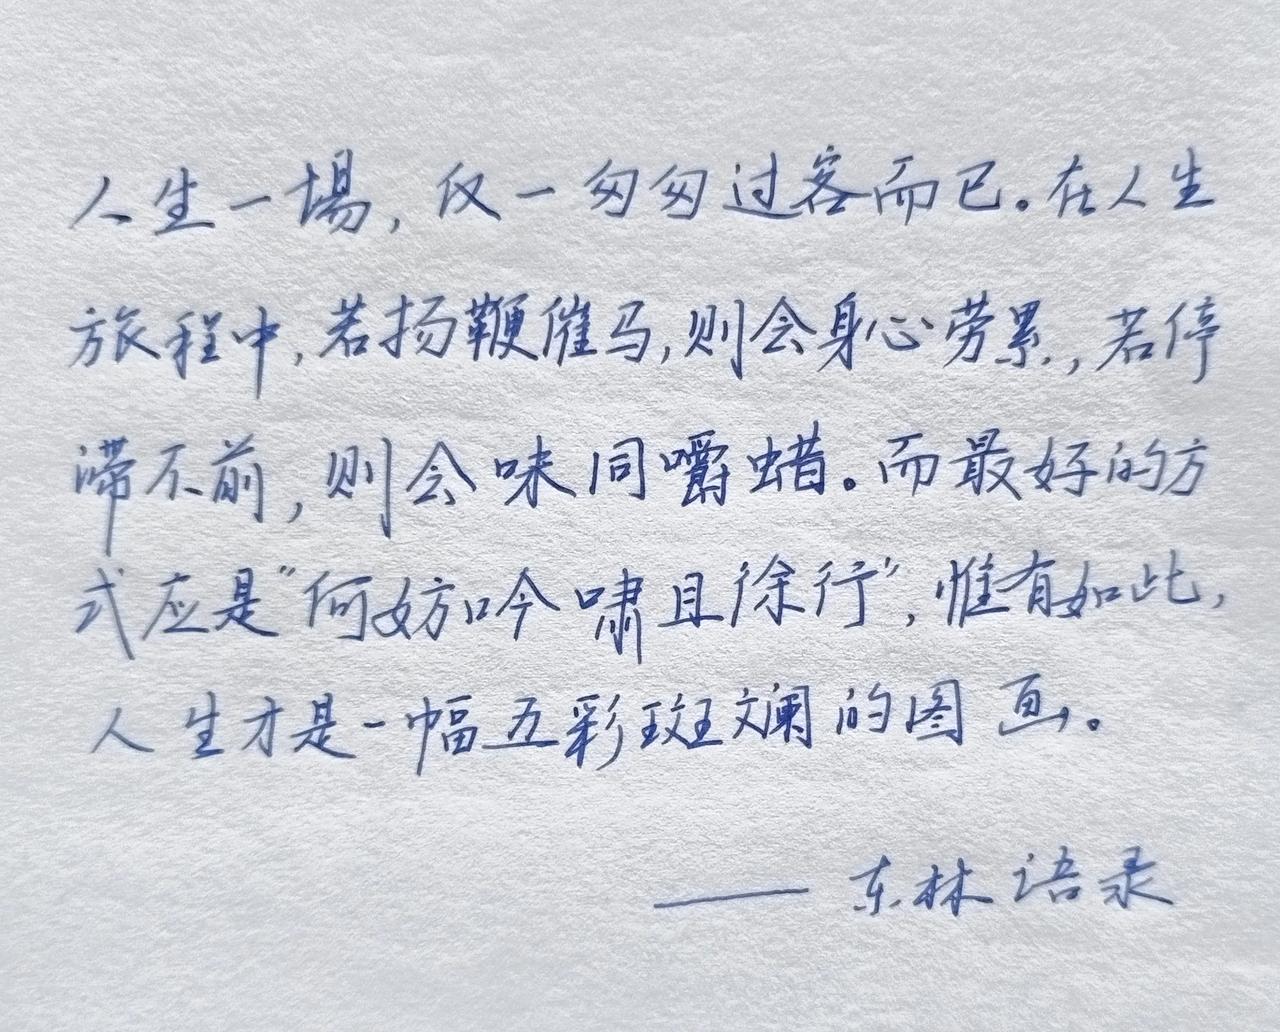 人生一場，仅一匆匆过客而已。在人生
旅程中，若扬鞭催马，则会身心劳累，若停
滞不前，则会味同嚼蜡。而最好的方
式应是“何妨吟啸且徐行”，惟有如此，
人生才是一幅五彩斑斓的图画。
—— 东林语录